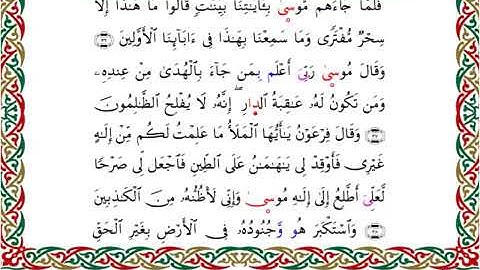 فَلَمَّا جَاءَهُم مُّوسَىٰ بِـَٔايَـٰتِنَا بَيِّنَـٰتٍ قَالُوا۟ مَا هَـٰذَا إِلَّا
سِحْرٌ مُّفْتَرًى وَمَا سَمِعْنَا بِهَـٰذَا فِىٓ ءَابَآئِنَا ٱلْأَوَّلِينَ ﴿٣٦﴾
وَقَالَ مُوسَىٰ رَبِّىٓ أَعْلَمُ بِمَن جَآءَ بِٱلْهُدَىٰ مِنْ عِندِهِۦ
وَمَن تَكُونُ لَهُۥ عَـٰقِبَةُ ٱلدَّارِ ۖ إِنَّهُۥ لَا يُفْلِحُ ٱلظَّـٰلِمُونَ
﴿٣٧﴾ وَقَالَ فِرْعَوْنُ يَـٰٓأَيُّهَا ٱلْمَلَأُ مَا عَلِمْتُ لَكُم مِّنْ إِلَـٰهٍ
غَيْرِى فَأَوْقِدْ لِى يَـٰهَـٰمَـٰنُ عَلَى ٱلطِّينِ فَٱجْعَل لِّى صَرْحًا
لَّعَلِّىٓ أَطَّلِعُ إِلَىٰٓ إِلَـٰهِ مُوسَىٰ وَإِنِّى لَأَظُنُّهُۥ مِنَ ٱلْكَـٰذِبِينَ
﴿٣٨﴾ وَٱسْتَكْبَرَ هُوَ وَجُنُودُهُۥ فِى ٱلْأَرْضِ بِغَيْرِ ٱلْحَقِّ